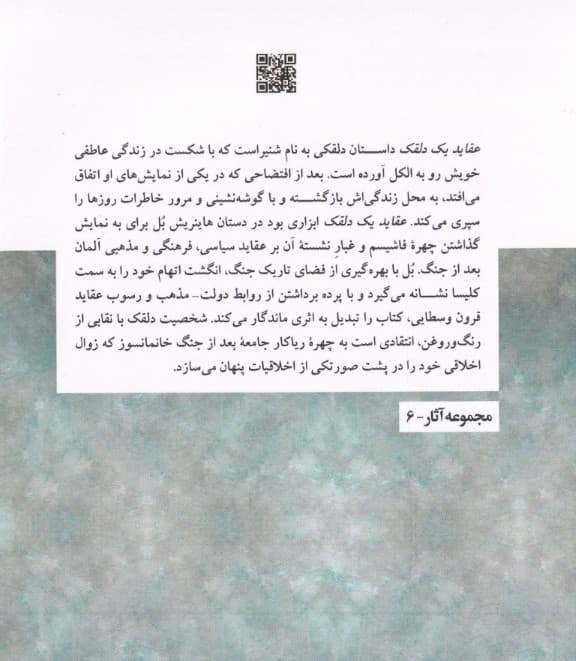 عقاید یک دلقک داستان دلقکی به نام شنیراست که با شکست در زندگی عاطفی
خویش رو به الکل آورده است. بعد از افتضاحی که در یکی از نمایش‌های او اتفاق
می‌افتد، به محل زندگی‌اش بازگشته و با گوشه‌نشینی و مرور خاطرات روزها را
سپری می‌کند. عقاید یک دلقک ابزاری بود در دستان هاینریش بُل برای به نمایش
گذاشتن چهرهٔ فاشیسم و غبارِ نشستهٔ آن بر عقاید سیاسی، فرهنگی و مذهبی آلمان
بعد از جنگ. بُل با بهره‌گیری از فضای تاریک جنگ، انگشت اتهام خود را به سمت
کلیسا نشانه می‌گیرد و با پرده برداشتن از روابط دولت-مذهب و رسوب عقاید
قرون وسطایی، کتاب را تبدیل به اثری ماندگار می‌کند. شخصیت دلقک با نقابی از
رنگ‌وروغن، انتقادی است به چهرهٔ ریاکار جامعهٔ بعد از جنگ خانمانسوز که زوال
اخلاقی خود را در پشت صورتکی از اخلاقیات پنهان می‌سازد.
مجموعه آثار-۶